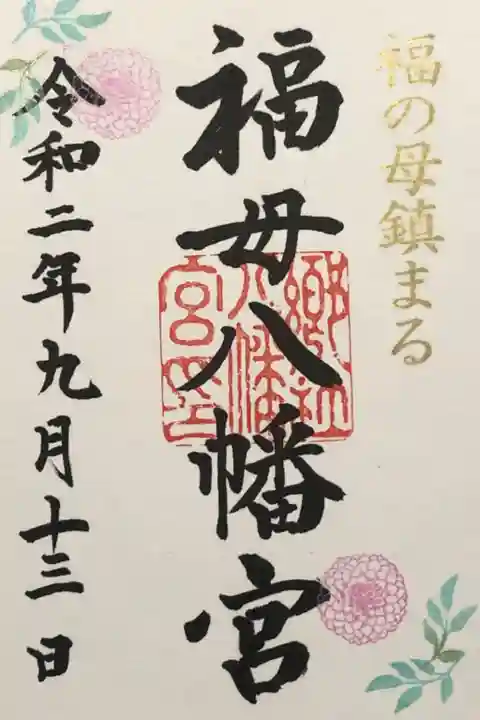 福の母鎮まる
福母八幡宮
郷社八幡宮印
令和二年九月十三日